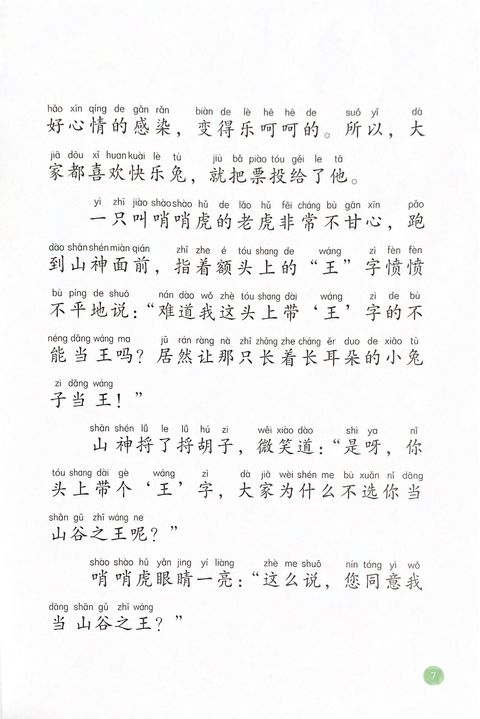 hǎo xīn qíng de gǎn rǎn biàn de lè hē hē de suǒ yǐ dà
好心情的感染，变得乐呵呵的。所以，大
jiā dōu xǐ huan kuài lè tù jiù bǎ piào tóu gěi le tā
家都喜欢快乐兔，就把票投给了他。
yì zhī jiào shào shào hǔ de lǎo hǔ fēi cháng bù gān xīn pǎo
一只叫哨哨虎的老虎非常不甘心，跑
dào shān shén miàn qián zhǐ zhe é tóu shang de wáng zì fèn fèn
到山神面前，指着额头上的“王”字愤愤
bù píng de shuō nán dào wǒ zhè tóu shang dài wáng zì de bù
不平地说：“难道我这头上带‘王’字的不
néng dāng wáng ma jū rán ràng nà zhī zhǎng zhe cháng ěr duo de xiǎo tù
能当王吗？居然让那只长着长耳朵的小兔
zi dāng wáng
子当王！”
shān shén lǚ le lǚ hú zi wēi xiào dào shì ya nǐ
山神捋了捋胡子，微笑道：“是呀，你
tóu shang dài gè wáng zì dà jiā wèi shén me bù xuǎn nǐ dāng
头上带个‘王’字，大家为什么不选你当
shān gǔ zhī wáng ne
山谷之王呢？”
shào shào hǔ yǎn jing yí liàng zhè me shuō nín tóng yì wǒ
哨哨虎眼睛一亮：“这么说，您同意我
dāng shān gǔ zhī wáng
当山谷之王？”
7